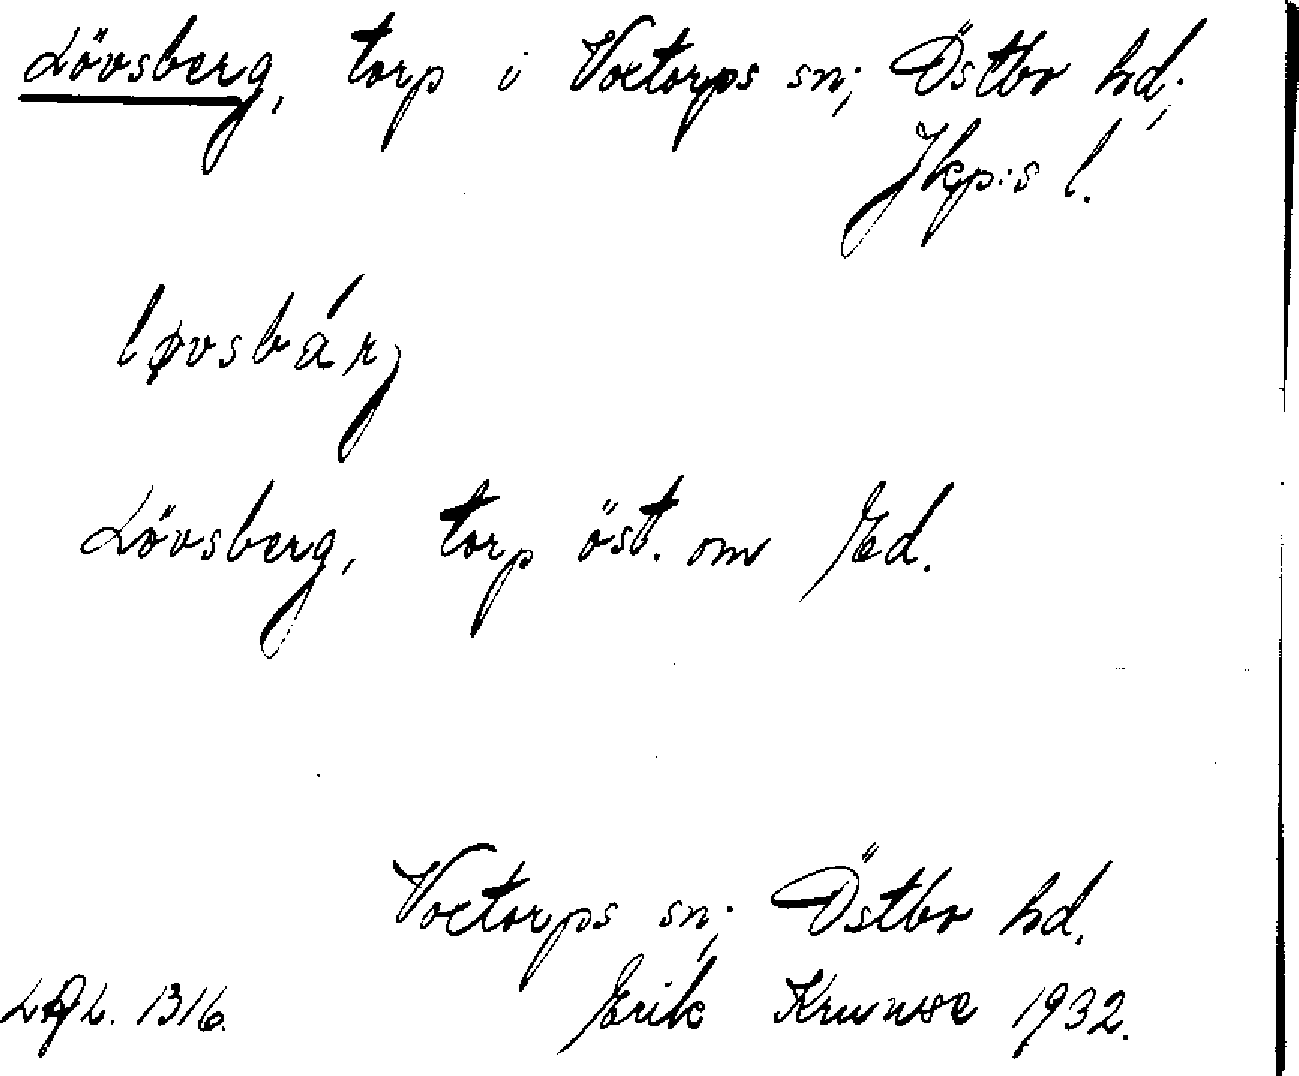 Lövsberg, torp i Voxtorps sn; Östbo hd;
Jkp:s l.
løvsbárj
Lövsberg, torp öst. om Ed.
Voxtorps sn; Östbo hd.
1316. Erik Krunse 1932.